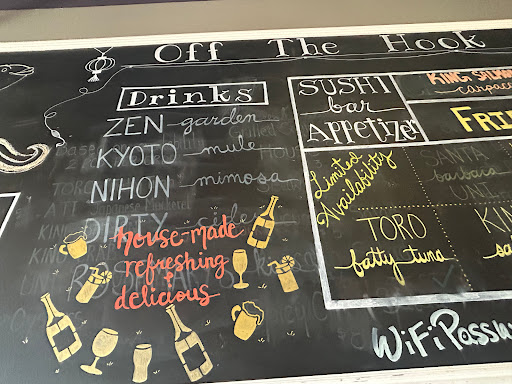 Off The Hook
Drinks
ZEN garden
KYOTO mule
NIHON mimosa
DIRTY side
house-made
refreshing
+
delicious
SUSHI
bar
Appetizer
KING SALMON
carpacc
FRI
Limited
Availability
SANTA
barbara
UNI
TORO
fatty tuna
KIN
sa
WiFi Passw